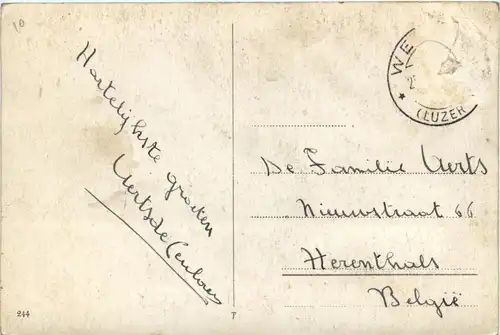 10
Hartelijkste groeten
Aerts de Ceulaer
WE
2
(LUZER
De Familie Aerts
Nieuwstraat 66
Herenthals
België
244
7